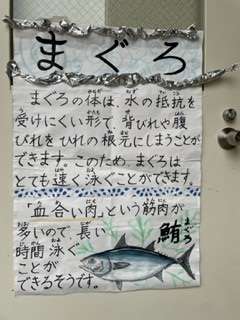 まぐろ
まぐろの体は、水の抵抗を
受けにくい形で、背びれや腹
びれを ひれの根元にしまうことが
できます。このため、まぐろは
とても速く泳ぐことができます。
「血合い肉」という筋肉が
多いので、長い
時間 泳ぐ
ことが
できるそうです。
鮪
まぐろ